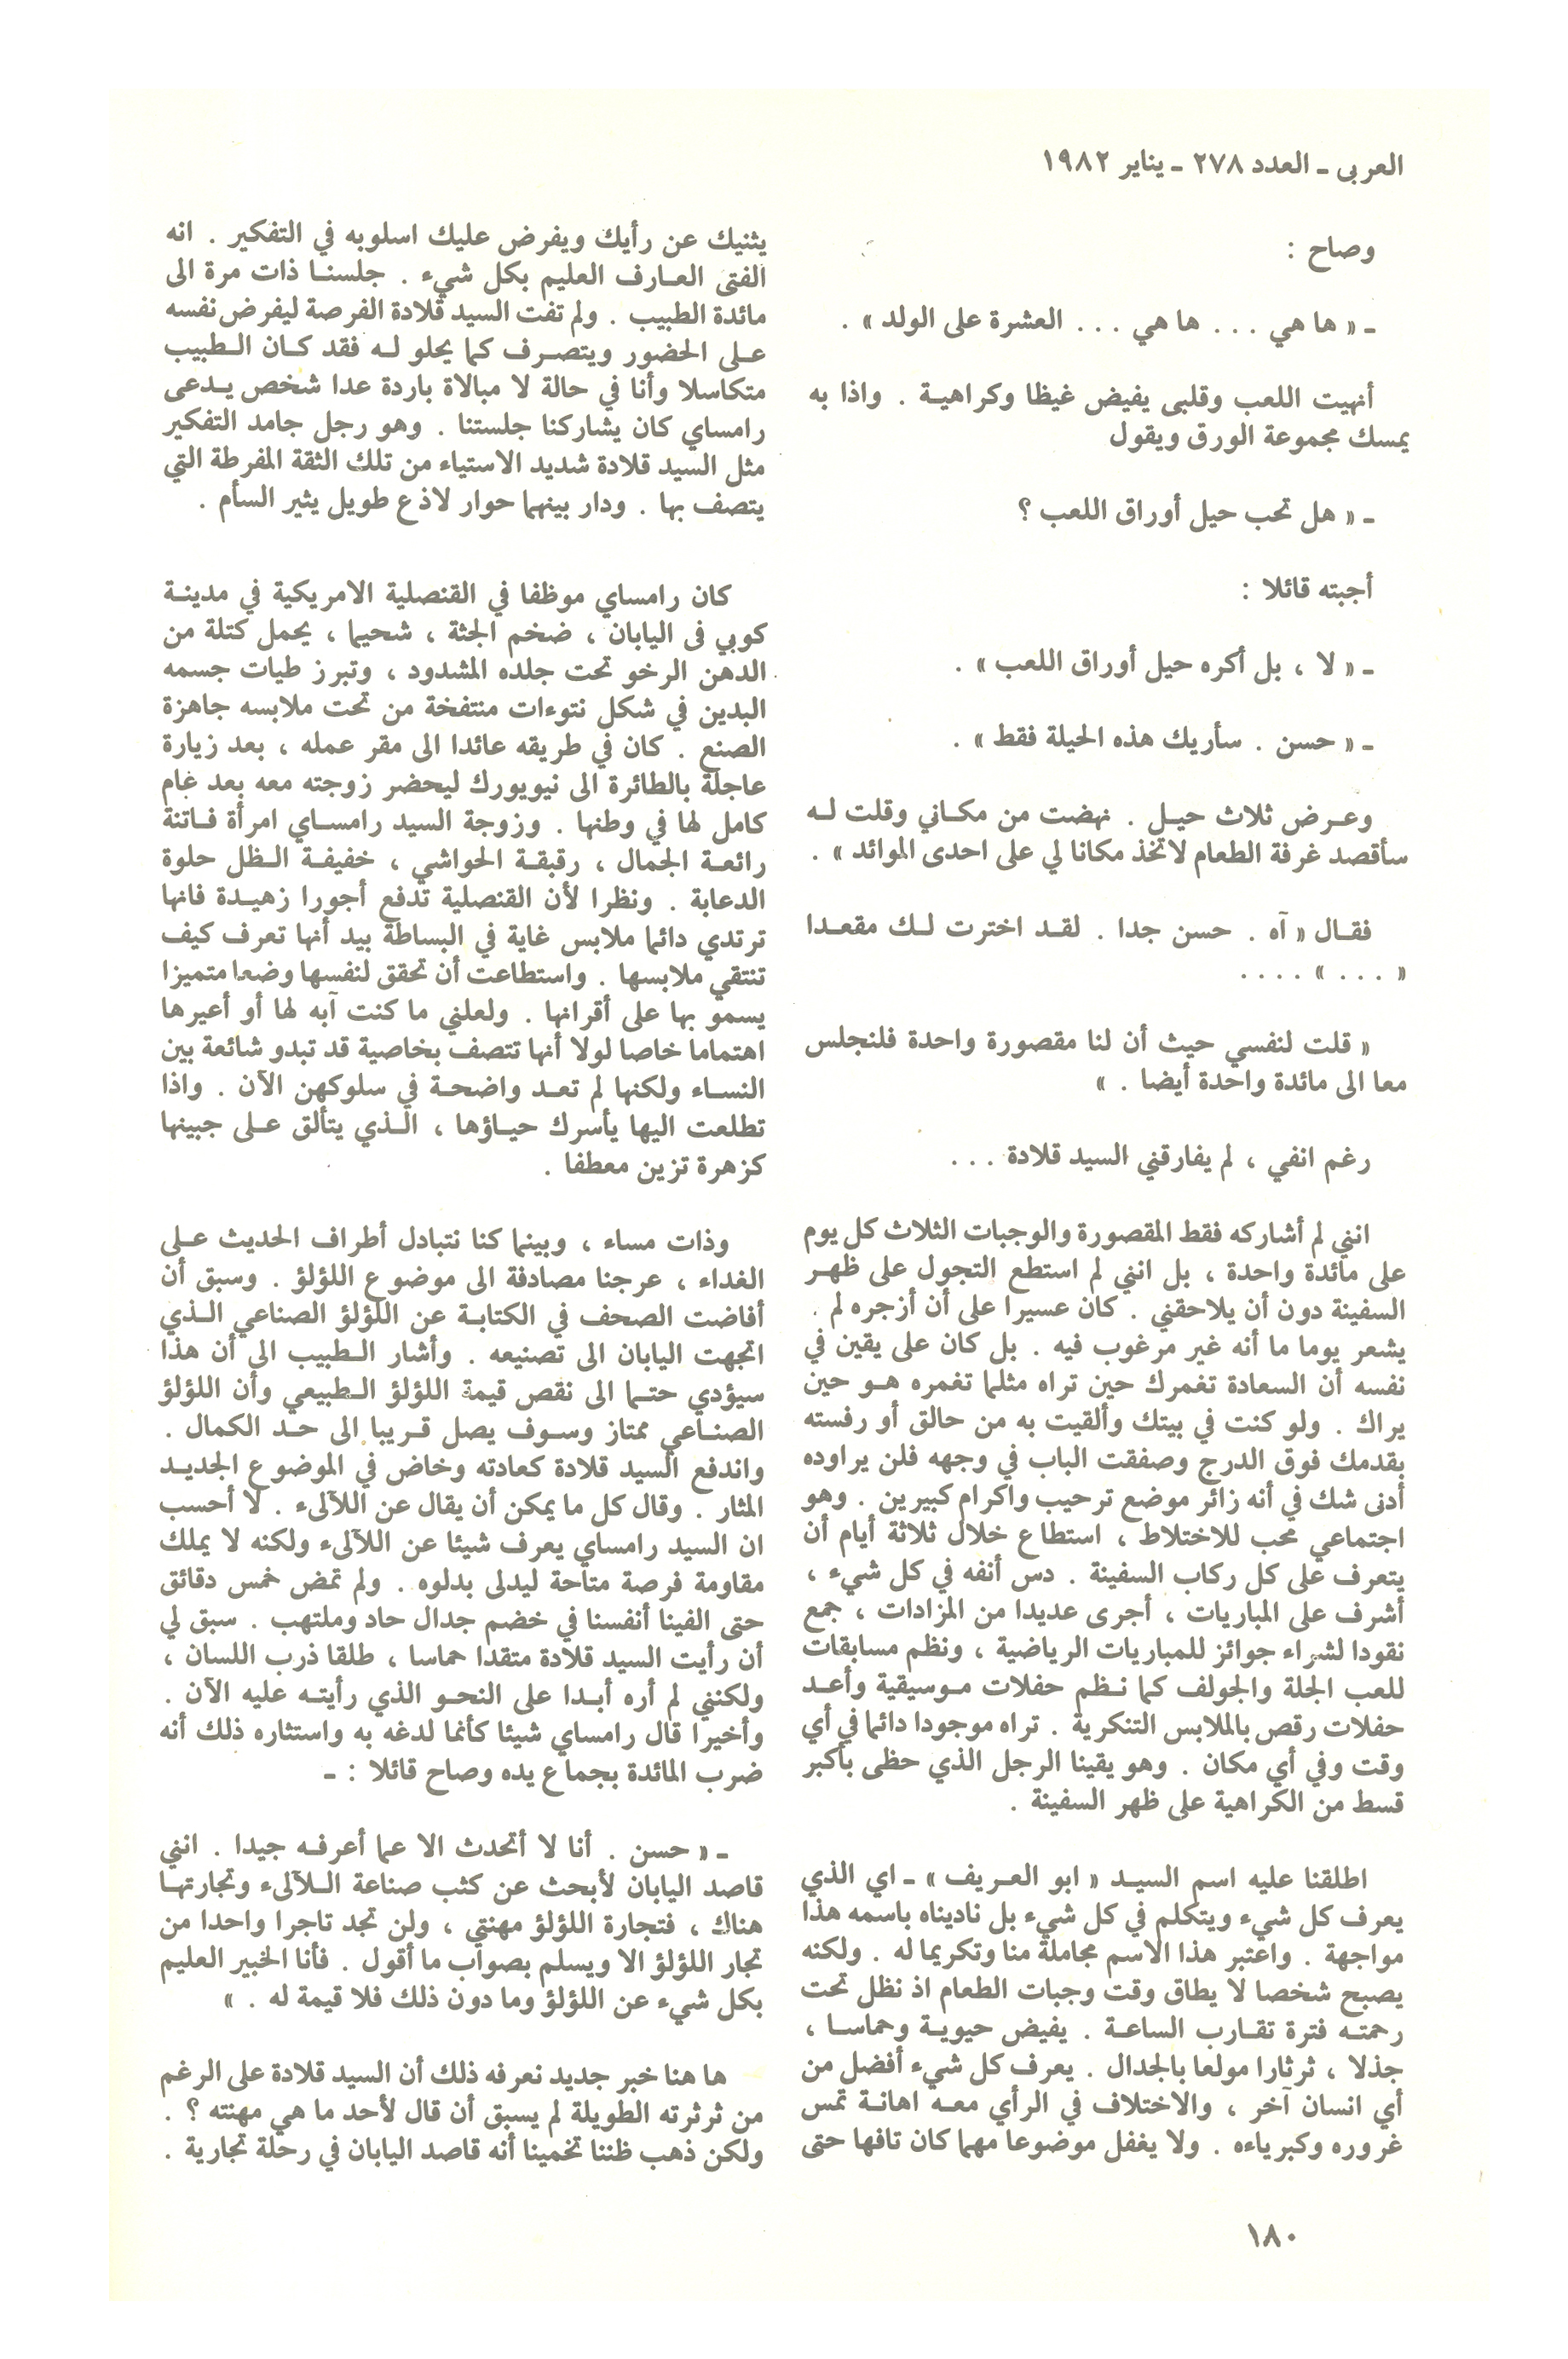 العربي ـ العدد ٢٧٨ ـ يناير ١٩٨٢
وصاح :
ـ « ها هي . . . ها هي . . . العشرة على الولد » .
أنهيت اللعب وقلبي يفيض غيظا وكراهية . واذا به
يمسك مجموعة الورق ويقول
ـ « هل تحب حيل أوراق اللعب ؟
أجبته قائلا :
ـ « لا ، بل أكره حيل أوراق اللعب » .
ـ « حسن . سأريك هذه الحيلة فقط » .
وعرض ثلاث حيل . نهضت من مكاني وقلت له
سأقصد غرفة الطعام لاتخذ مكانا لي على احدى الموائد » .
فقال « آه . حسن جدا . لقد اخترت لك مقعدا
« . . . » . . . .
« قلت لنفسي حيث أن لنا مقصورة واحدة فلنجلس
معا الى مائدة واحدة أيضا . »
رغم انفي ، لم يفارقني السيد قلادة . . .
انني لم أشاركه فقط المقصورة والوجبات الثلاث كل يوم
على مائدة واحدة ، بل انني لم استطع التجول على ظهر
السفينة دون أن يلاحقني . كان عسيرا على أن أزجره لم .
يشعر يوما ما أنه غير مرغوب فيه . بل كان على يقين في
نفسه أن السعادة تغمرك حين تراه مثلما تغمره هو حين
يراك . ولو كنت في بيتك وألقيت به من حالق أو رفسته
بقدمك فوق الدرج وصفقت الباب في وجهه فلن يراوده
أدنى شك في أنه زائر موضع ترحيب واكرام كبيرين . وهو
اجتماعي محب للاختلاط ، استطاع خلال ثلاثة أيام أن
يتعرف على كل ركاب السفينة . دس أنفه في كل شيء ،
أشرف على المباريات ، أجرى عديدا من المزادات ، جمع
نقودا لشراء جوائز للمباريات الرياضية ، ونظم مسابقات
للعب الجلة والجولف كما نظم حفلات موسيقية وأعد
حفلات رقص بالملابس التنكرية . تراه موجودا دائما في أي
وقت وفي أي مكان . وهو يقينا الرجل الذي حظى بأكبر
قسط من الكراهية على ظهر السفينة .
اطلقنا عليه اسم السيد « ابو العريف » ـ اي الذي
يعرف كل شيء ويتكلم في كل شيء بل ناديناه باسمه هذا
مواجهة . واعتبر هذا الاسم مجاملة منا وتكريما له . ولكنه
يصبح شخصا لا يطاق وقت وجبات الطعام اذ نظل تحت
رحمته فترة تقارب الساعة . يفيض حيوية وحماسا ،
جذلا ، ثرثارا مولعا بالجدال . يعرف كل شيء أفضل من
أي انسان آخر ، والاختلاف في الرأي معه اهانة تمس
غروره وكبرياءه . ولا يغفل موضوعا مهما كان تافها حتى
يثنيك عن رأيك ويفرض عليك اسلوبه في التفكير . انه
الفتى العارف العليم بكل شيء . جلسنا ذات مرة الى
مائدة الطبيب . ولم تفت السيد قلادة الفرصة ليفرض نفسه
على الحضور ويتصرف كما يحلو له فقد كان الطبيب
متكاسلا وأنا في حالة لا مبالاة باردة عدا شخص يدعى
رامساي كان يشاركنا جلستنا . وهو رجل جامد التفكير
مثل السيد قلادة شديد الاستياء من تلك الثقة المفرطة التي
يتصف بها . ودار بينهما حوار لاذع طويل يثير السأم .
كان رامساي موظفا في القنصلية الامريكية في مدينة
كوبي فى اليابان ، ضخم الجثة ، شحيما ، يحمل كتلة من
الدهن الرخو تحت جلده المشدود ، وتبرز طيات جسمه
البدين في شكل نتوءات منتفخة من تحت ملابسه جاهزة
الصنع . كان في طريقه عائدا الى مقر عمله ، بعد زيارة
عاجلة بالطائرة الى نيويورك ليحضر زوجته معه بعد غام
كامل لها في وطنها . وزوجة السيد رامساي امرأة فاتنة
رائعة الجمال ، رقيقة الحواشي ، خفيفة الظل حلوة
الدعابة . ونظرا لأن القنصلية تدفع أجورا زهيدة فانها
ترتدي دائما ملابس غاية في البساطة بيد أنها تعرف كيف
تنتقي ملابسها . واستطاعت أن تحقق لنفسها وضعا متميزا
يسمو بها على أقرانها . ولعلني ما كنت آبه لها أو أعيرها
اهتماما خاصا لولا أنها تتصف بخاصية قد تبدو شائعة بين
النساء ولكنها لم تعد واضحة في سلوكهن الآن . واذا
تطلعت اليها يأسرك حياؤها ، الذي يتألق على جبينها
كزهرة تزين معطفا .
وذات مساء ، وبينما كنا نتبادل أطراف الحديث على
الغداء ، عرجنا مصادفة الى موضوع اللؤلؤ . وسبق أن
أفاضت الصحف في الكتابة عن اللؤلؤ الصناعي الذي
اتجهت اليابان الى تصنيعه . وأشار الطبيب الى أن هذا
سيؤدي حتما الى نقص قيمة اللؤلؤ الطبيعي وأن اللؤلؤ
الصناعي ممتاز وسوف يصل قريبا الى حد الكمال .
واندفع السيد قلادة كعادته وخاض في الموضوع الجديد
المثار . وقال كل ما يمكن أن يقال عن اللآلىء . لا أحسب
ان السيد رامساي يعرف شيئا عن اللآلىء ولكنه لا يملك
مقاومة فرصة متاحة ليدلى بدلوه . ولم تمض خمس دقائق
حتى الفينا أنفسنا في خضم جدال حاد وملتهب . سبق لي
أن رأيت السيد قلادة متقدا حماسا ، طلقا ذرب اللسان ،
ولكنني لم أره أبدا على النحو الذي رأيته عليه الآن .
وأخيرا قال رامساي شيئا كأنما لدغه به واستثاره ذلك أنه
ضرب المائدة بجماع يده وصاح قائلا : ـ
ـ « حسن . أنا لا أتحدث الا عما أعرفه جيدا . انني
قاصد اليابان لأبحث عن كثب صناعة اللآلىء وتجارتها
هناك ، فتجارة اللؤلؤ مهنتي ، ولن تجد تاجرا واحدا من
تجار اللؤلؤ الا ويسلم بصواب ما أقول . فأنا الخبير العليم
بكل شيء عن اللؤلؤ وما دون ذلك فلا قيمة له . »
ها هنا خبر جديد نعرفه ذلك أن السيد قلادة على الرغم
من ثرثرته الطويلة لم يسبق أن قال لأحد ما هي مهنته ؟ .
ولكن ذهب ظننا تخمينا أنه قاصد اليابان في رحلة تجارية .
١٨٠